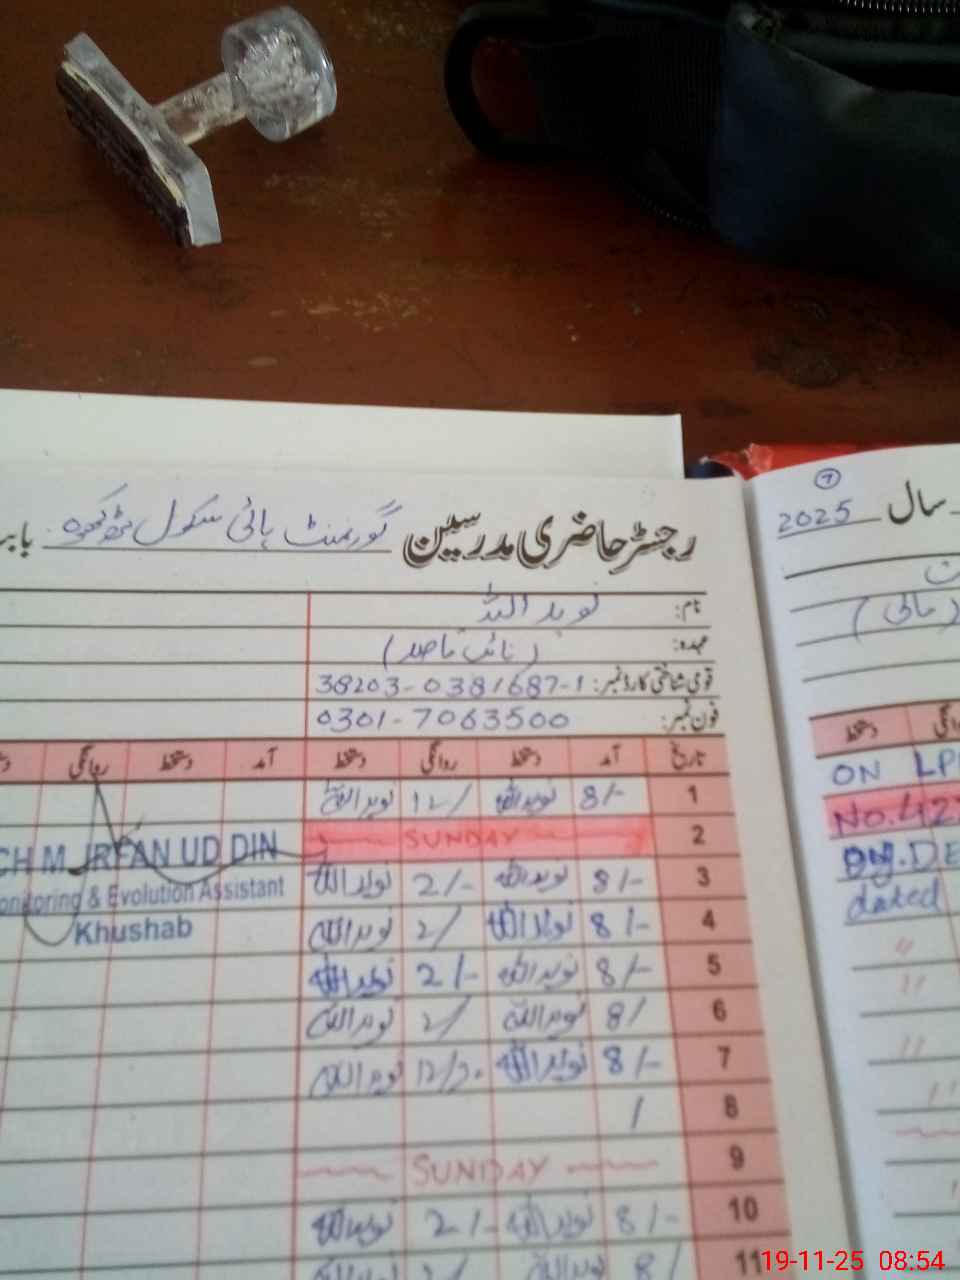 رجسٹر حاضری مدرسین گورنمنٹ ہائی سکول
نام: نوید اللہ
عہدہ: (نائب قاصد)
قومی شناختی کارڈ نمبر: 38203-0381687-1
فون نمبر: 0301-7063500
تاریخ آمد دستخط روانگی دستخط آمد دستخط روانگی
1 8/- نوید اللہ 12/ نوید اللہ
2 SUNDAY
3 8/- نوید اللہ 2/- نوید اللہ
4 8/- نوید اللہ 2/ نوید اللہ
5 8/- نوید اللہ 2/- نوید اللہ
6 8/ نوید اللہ 2/ نوید اللہ
7 8/- نوید اللہ 12/ نوید اللہ
8 /
9 SUNDAY
10 8/- نوید اللہ 2/- نوید اللہ
11 8/ نوید اللہ 2/
CH M IRFAN UD DIN
onitoring & Evolution Assistant
Khushab
7
سال 2025
(مالی)
روانگی دستخط
ON LP
No.427
BY.DE
dated
19-11-25 08:54